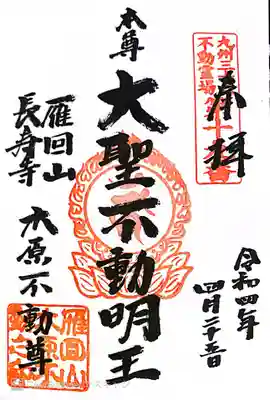 奉拝
本尊
大聖不動明王
雁回山
長寿寺
木原不動尊
令和四年
四月二十五日
九州三十
不動霊場
雁回山